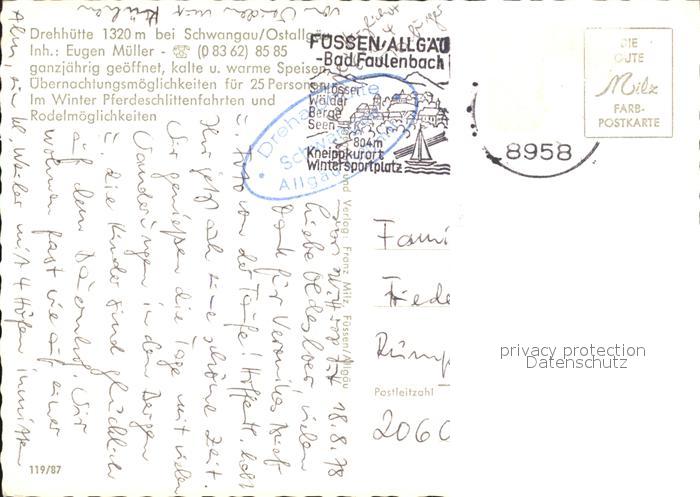 Drehhütte 1320 m bei Schwangau/Ostallgäu
Inh.: Eugen Müller - ☎ (0 83 62) 85 85
ganzjährig geöffnet, kalte u. warme Speisen
Übernachtungsmöglichkeiten für 25 Personen
Im Winter Pferdeschlittenfahrten und
Rodelmöglichkeiten
FÜSSEN/ALLGÄU
-Bad Faulenbach
Schlösser
Wälder
Berge
Seen
804m
Kneippkurort
Wintersportplatz
Schwan
Allgäu
8958
DIE
GUTE
Milz
FARB-
POSTKARTE
und Verlag: Franz Milz, Füssen/Allgäu
18.8.78
Liebe Oldesloer, vielen
Dank für Veronikas Brief
von der Taufe! Hoffentl. habt
Ihr jetzt auch eine schöne Zeit.
Wir genießen die Tage mit vielen
Wanderungen in den Bergen
die Kinder sind glücklich
auf dem Bauernhof. Wir
wohnen fast wie auf einer
Alm, mit 4 Höfen inmitten
von mit Kühen
Fami
Friede
Rümp
Postleitzahl
2060
119/87
privacy protection
Datenschutz